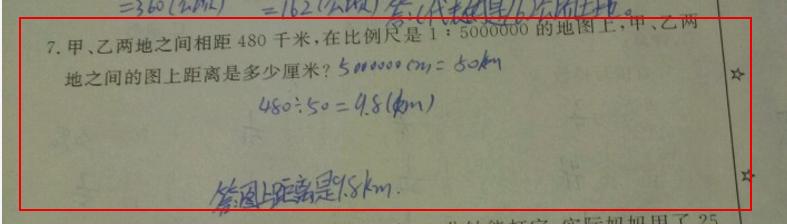 =360(公顷) =162(公顷)
7. 甲、乙两地之间相距 480 千米,在比例尺是 1：5000000 的地图上,甲、乙两
地之间的图上距离是多少厘米? 5000000cm=50km
480÷50=9.8(km)
答:图上距离是9.8km.
实际妈妈用了 25